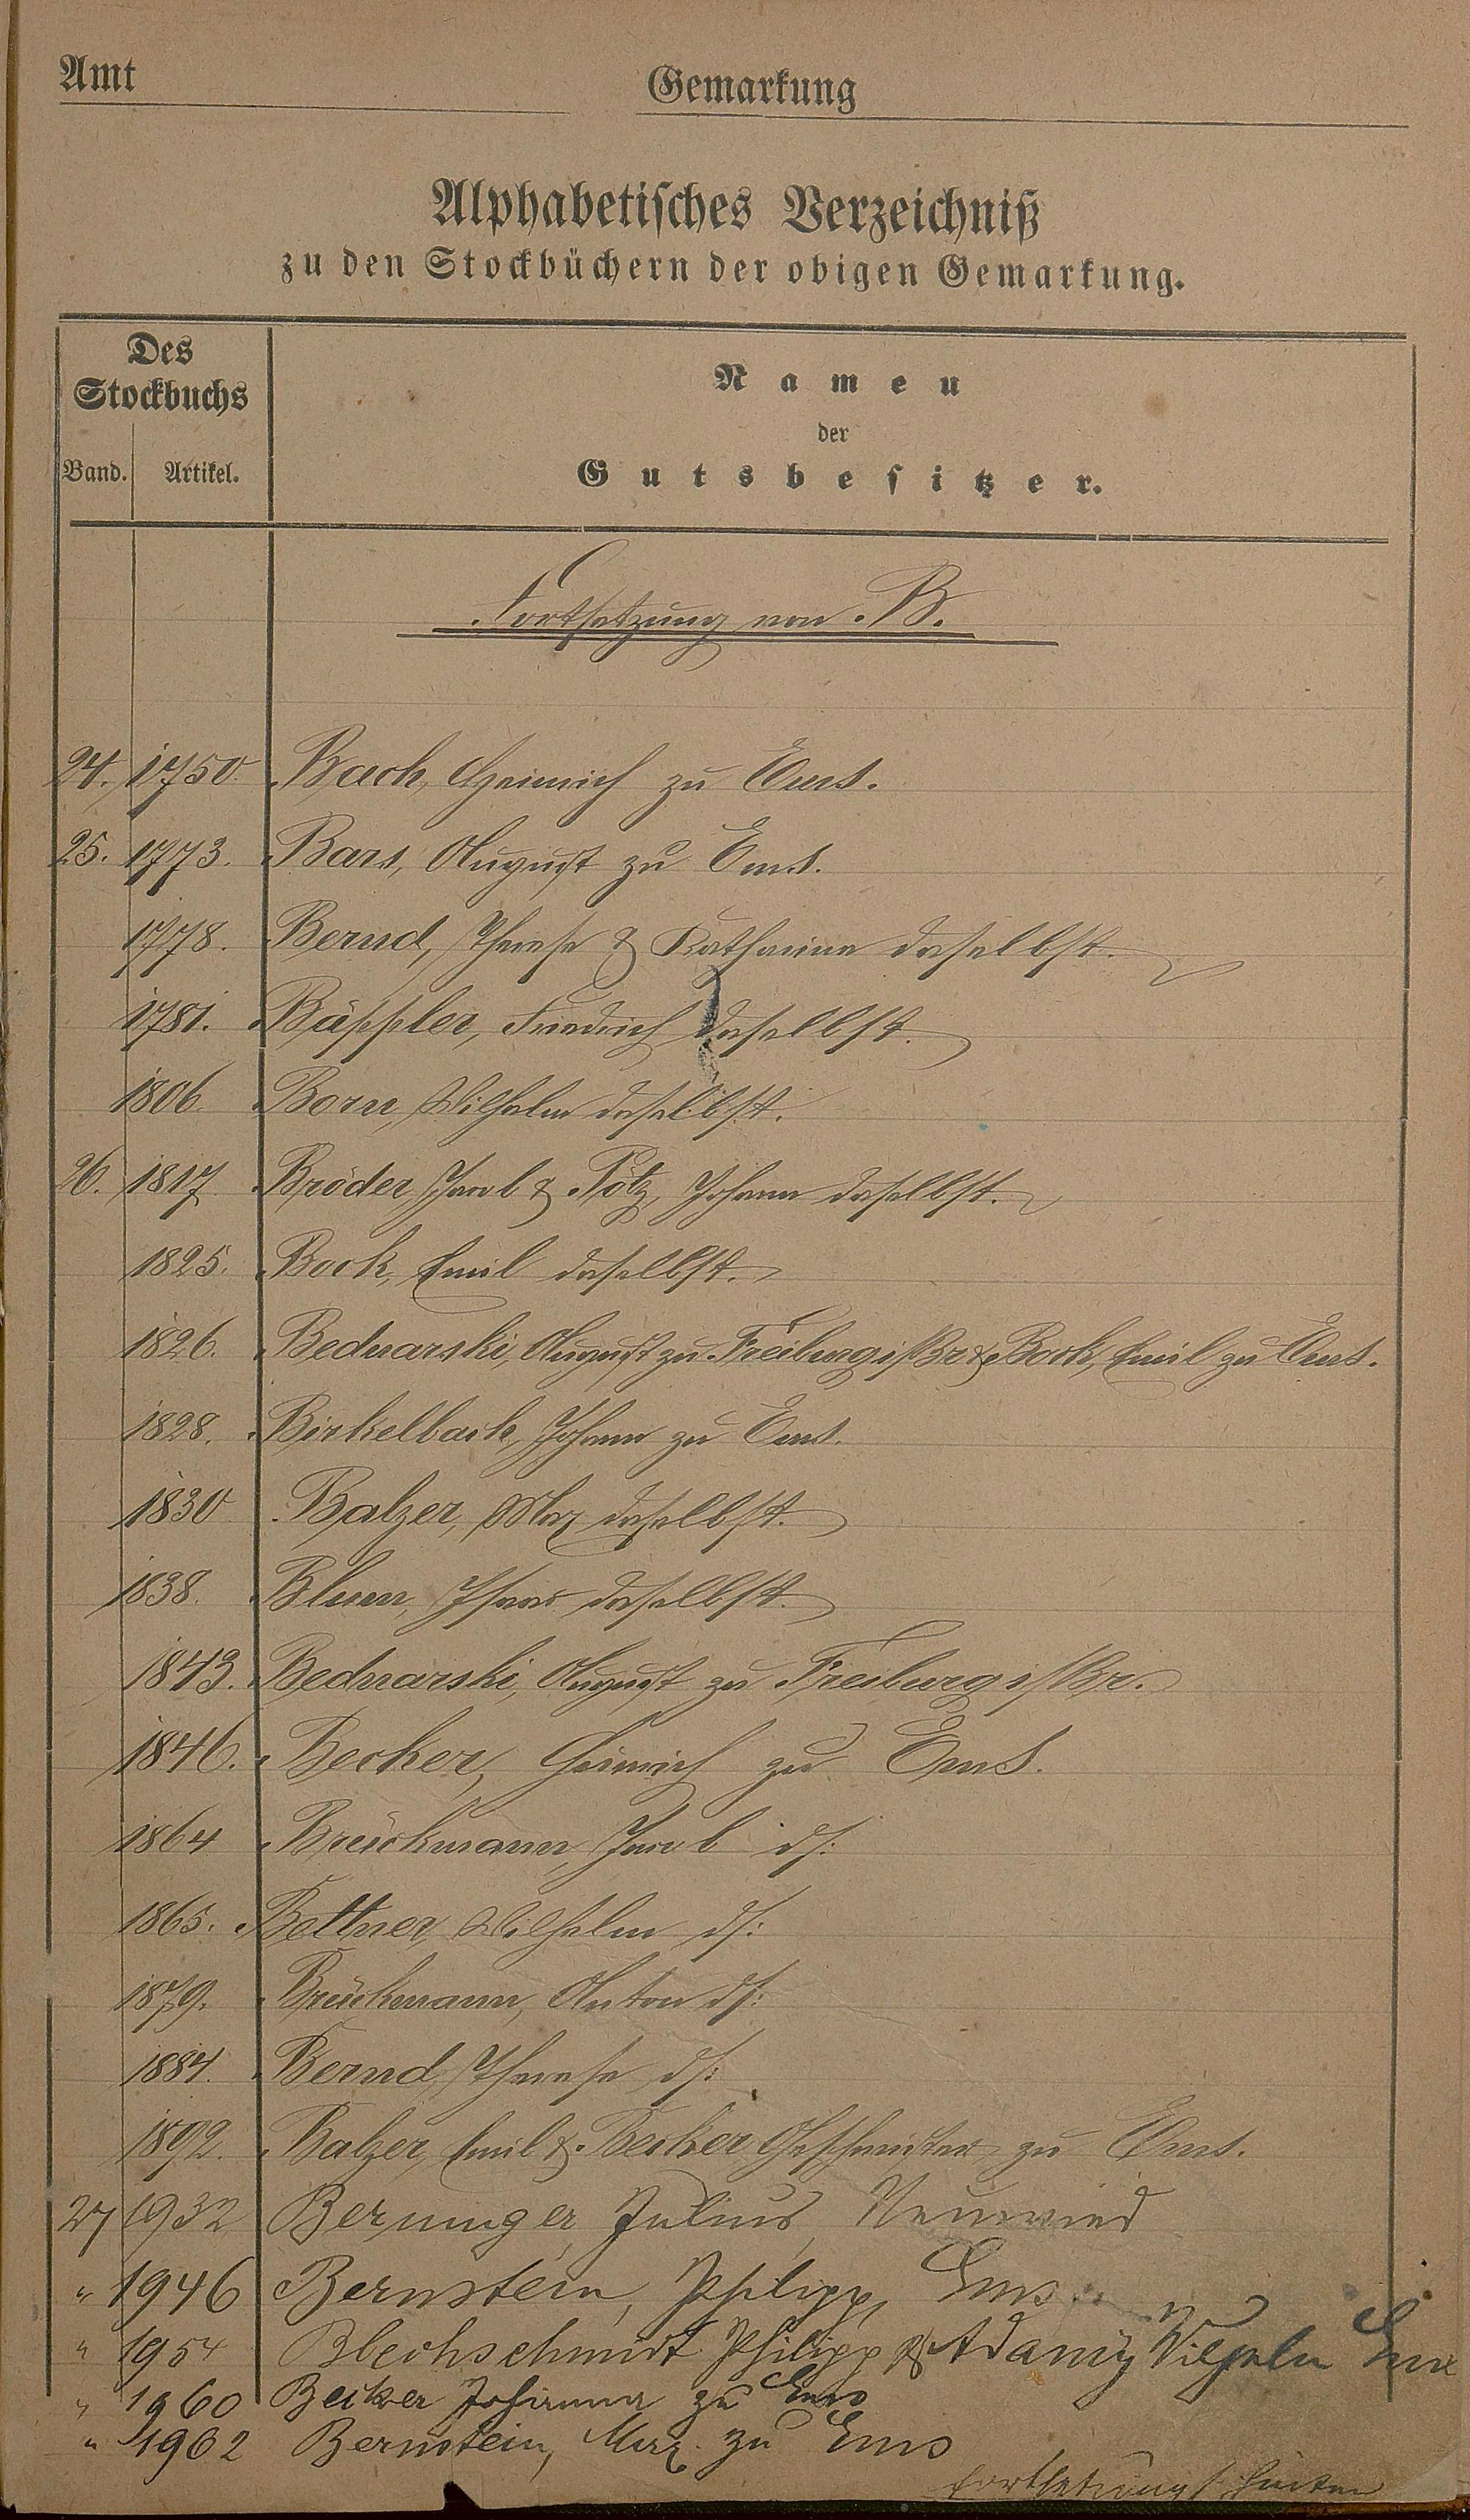 Amt
Gemarkung
Alphabetisches Verzeichniß
zu den Stockbüchern der obigen Gemarkung.
Des
Stockbuchs
Band. Artikel.
Namen
der
Gutsbesitzer.
Fortsetzung von B.
24. 1750. Bach, Heinrich zu Ems.
25. 1773. Bars, August zu Ems.
1778. Bernd, Therese & Katharina daselbst.
1781. Bäppler, Friedrich daselbst.
1806. Born, Wilhelm daselbst.
26. 1817. Bröder, Jacob & Pötz, Johann daselbst.
1825. Bock, Emil daselbst.
1826. Bednarski, August zu Freiburg i/Br & Bock, Emil zu Ems.
1828. Birkelbach, Johann zu Ems.
1830 Balzer, Max daselbst.
1838. Blum, daselbst.
1843. Bednarski, August zu Freiburg i/Br.
1846. Becker, Heinrich zu Ems.
1864 Brückmann, Jacob ds:
1865. Bettner, Wilhelm ds:
1879. Brückmann, Anton ds:
1884. Bernd, Therese ds:
1892. Balzer, Emil & Becker, Geschwister zu Ems.
27 1932 Berninger, Julius, Neuwied
" 1946 Bernstein, Philipp, Ems
" 1954 Blechschmidt Philipp & Adamy Wilhelm Ems
" 1960 Becker Johanna zu Ems
" 1962 Bernstein, Max zu Ems
Fortsetzung s. hinten